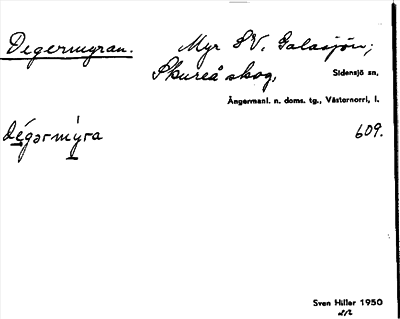 Degermyran. Myr SV. Galasjön;
Skureå skog, Sidensjö sn,
Ångermanl. n. doms. tg., Västernorrl, l.
dégərmy̆ra 609.
Sven Hiller 1950